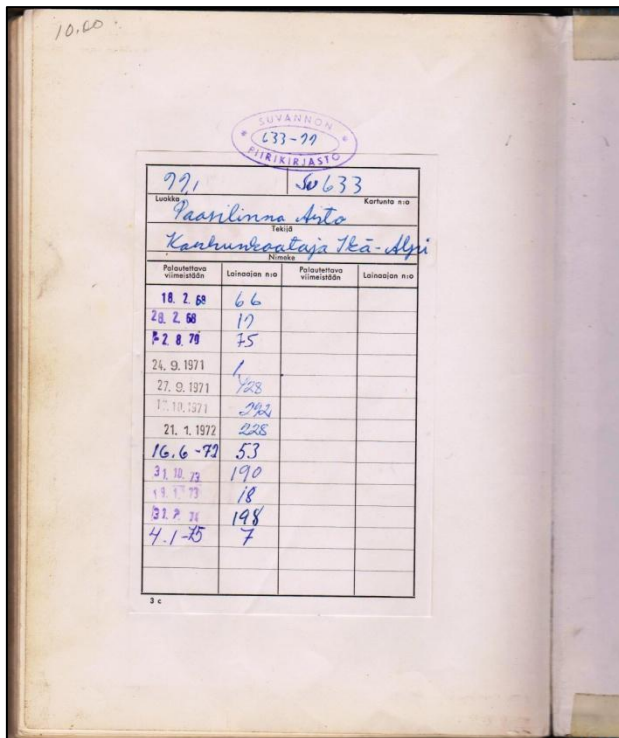 10.60
SUVANNON
633-99
PIIRIKIRJASTO
99, Su 633
Luokka Kortunta n:o
Paasilinna Arto
Tekijä
Karhunkaataja Ikä-Alpi
Nimeke
Palautettava viimeistään Lainaajan n:o Palautettava viimeistään Lainaajan n:o
18. 2. 68 66
28. 2. 68 17
2. 8. 70 75
24. 9. 1971 1
27. 9. 1971 428
10. 1971 292
21. 1. 1972 228
16.6-72 53
31. 10. 73 190
73 18
31. 74 198
4.1-75 7
3 c